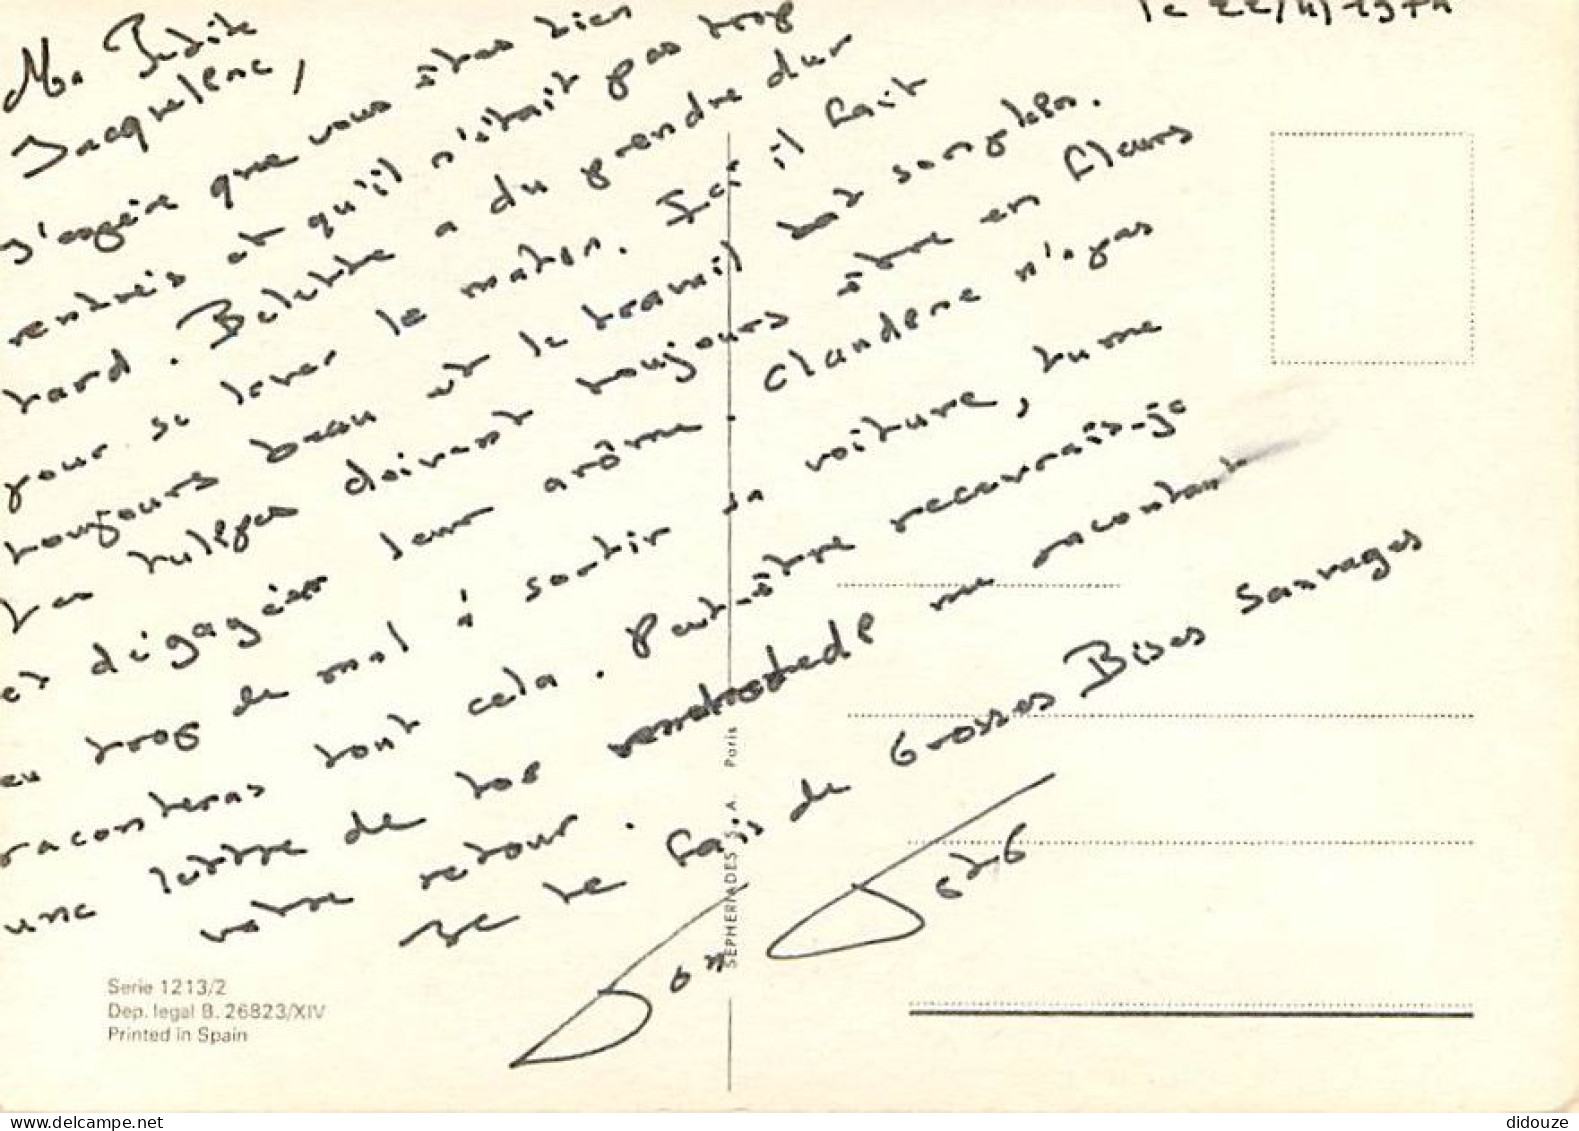 le 22/4/1974
Ma Petite
Jacqueline,
J'espère que vous êtes bien
rentrés et qu'il n'était pas trop
tard. Belette a du prendre dur
pour se lever le matin. Ici il fait
toujours beau et le travail bat son plein.
Les tulipes doivent toujours être en fleurs
et dégager leur arôme. Claudine n'a pas
eu trop de mal à sortir sa voiture, tu me
raconteras tout cela. Peut-être recevrais-je
une lettre de toi vendredi me racontant
votre retour.
Je te fais de Grosses Bises Sauvages
Ton
SEPHERIADES S.A. Paris
Serie 1213/2
Dep. legal B. 26823/XIV
Printed in Spain
www.delcampe.net
didouze